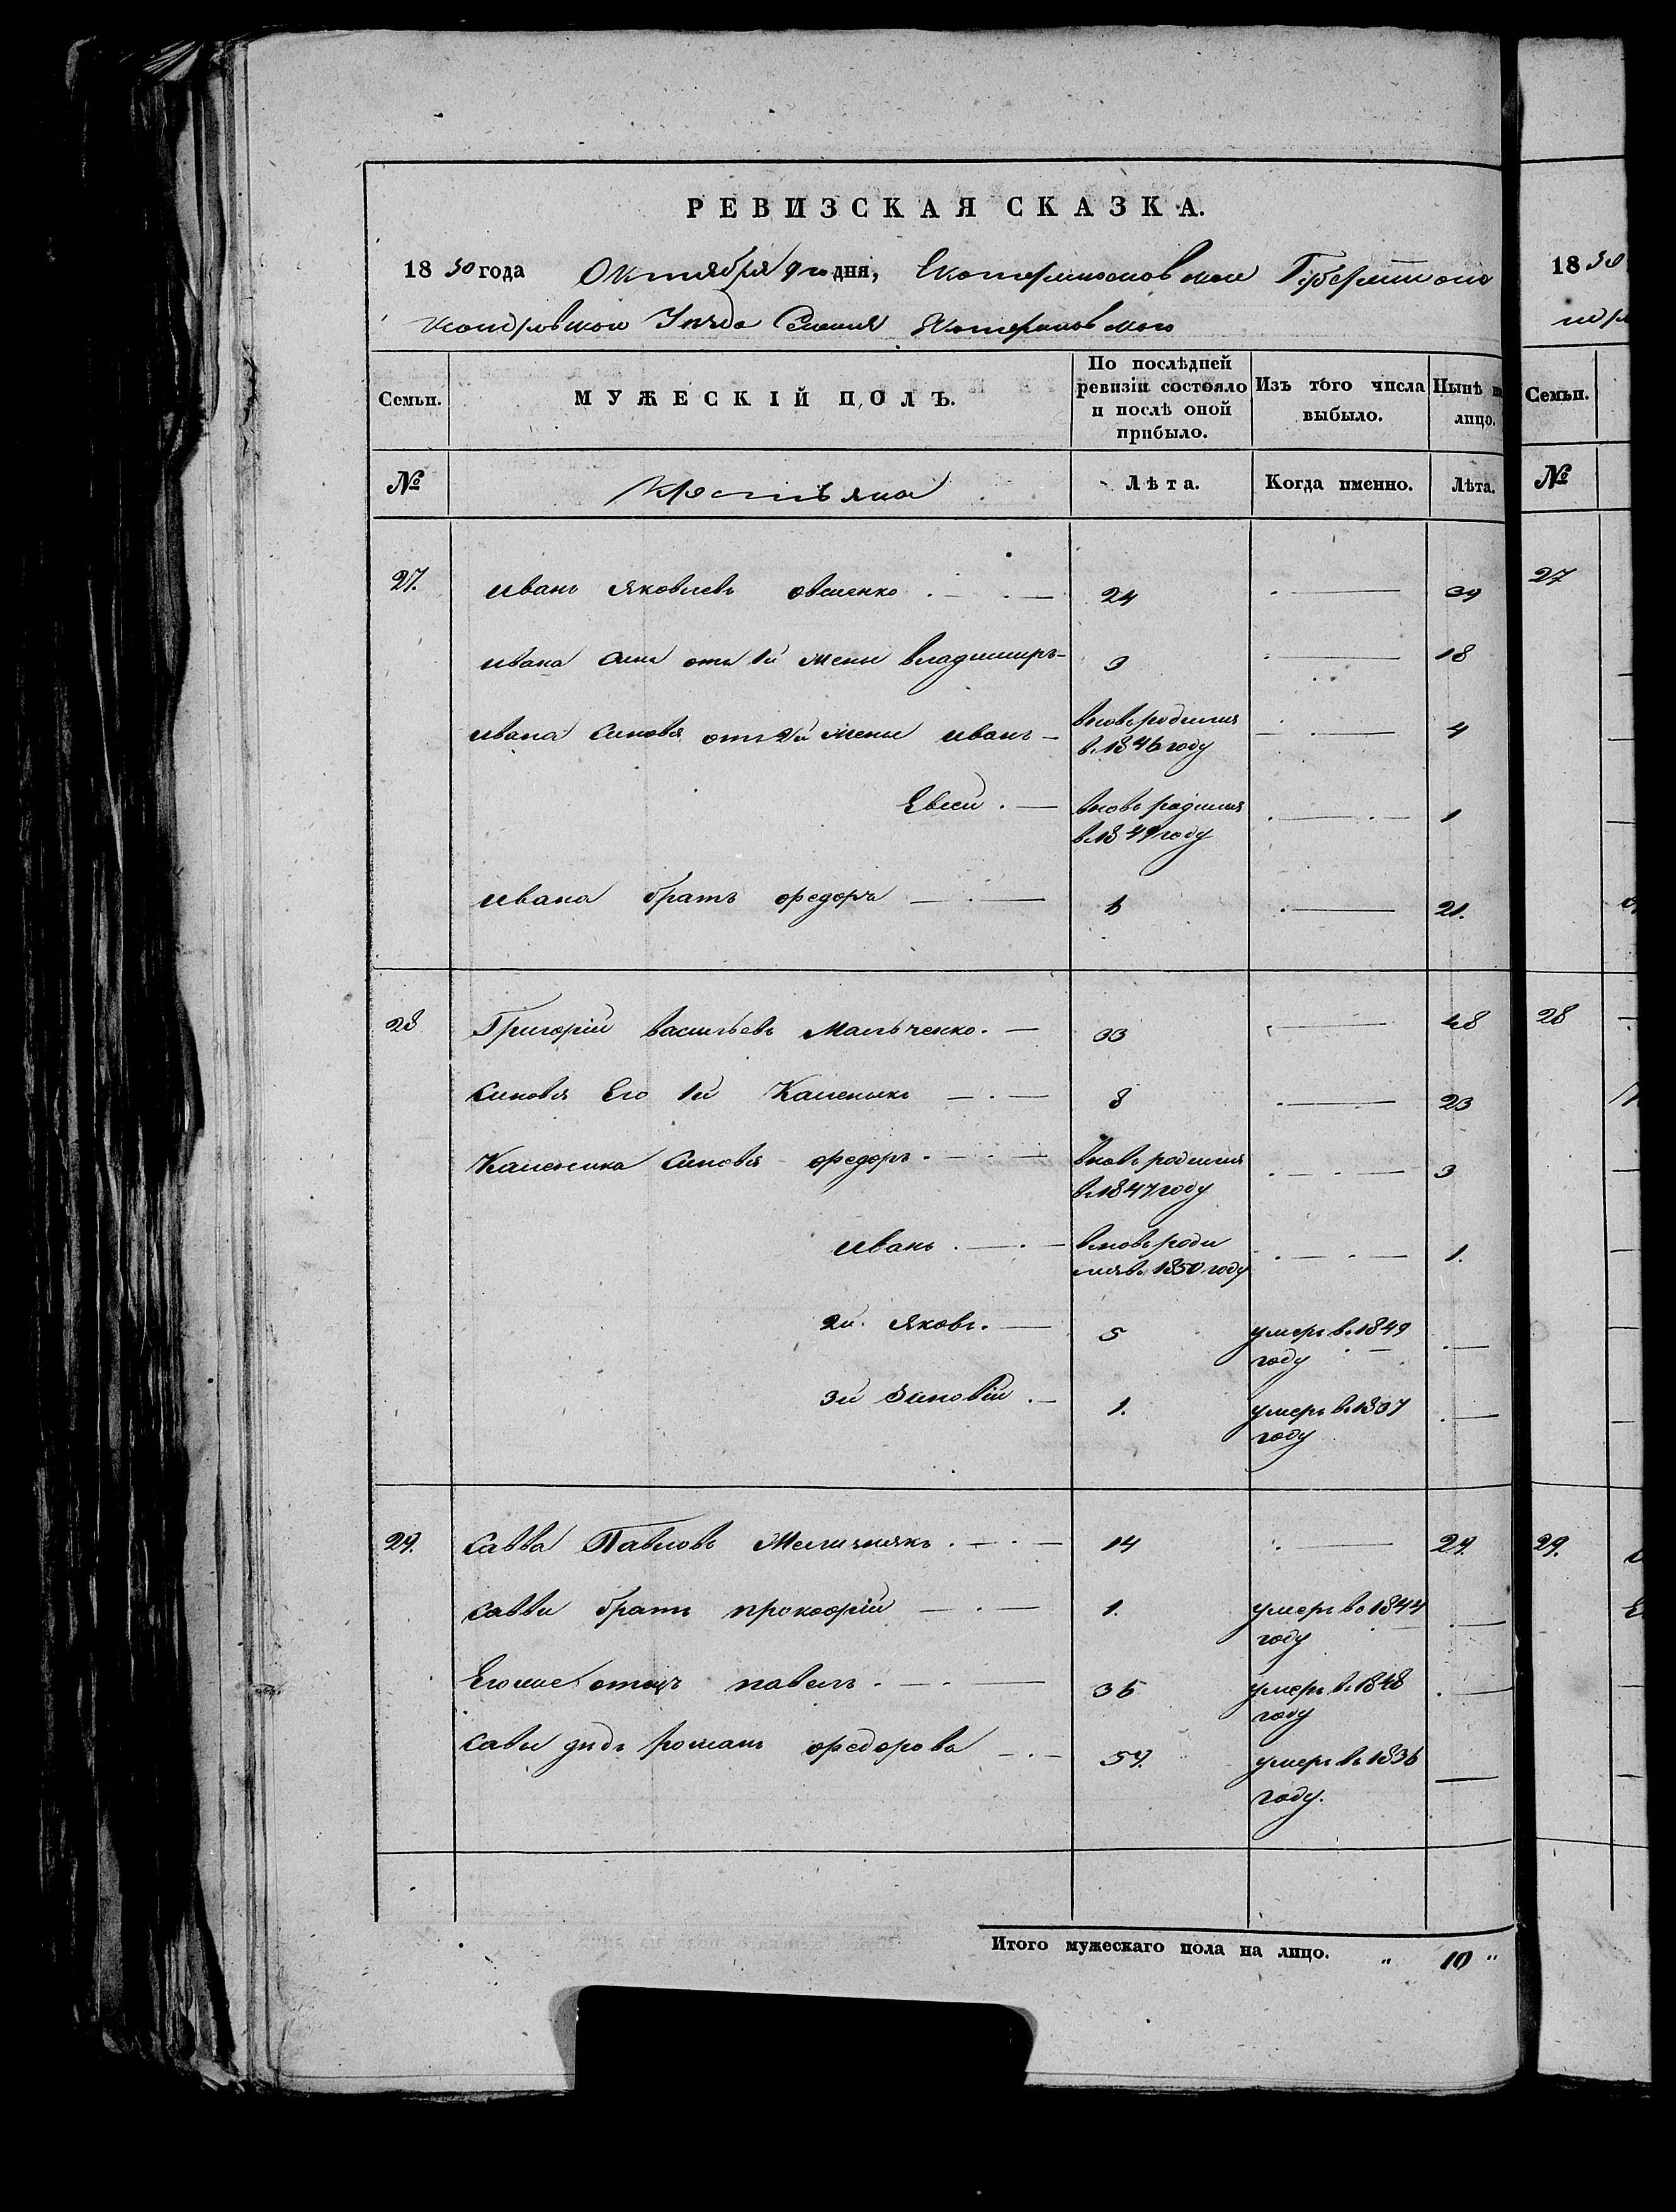 РЕВИЗСКАЯ СКАЗКА.
1850 года Октября 9го дня, Екатеринославской Губернии
Уезда Селения
Семьи. МУЖЕСКІЙ ПОЛЪ. По послѣдней ревизіи состояло и послѣ оной прибыло. Изъ того числа выбыло. Нынѣ на лицо.
№ Крестьяне Лѣта. Когда именно. Лѣта.
27. иванъ яковлевъ овсиенко 24 34
ивана сынъ отъ 1й жены владимиръ 3 18
ивана сыновья отъ 2й жены иванъ вновь родился в. 1846 году 4
Евсей вновь родился в. 1849 году 1
ивана братъ федоръ 6 21.
28 Григорій васильевъ Мальченко 33 48
Сыновья Его 1й Каленикъ 8 23
Каленика Сыновья федоръ вновь родился в. 1847 году 3
иванъ вновь родился в. 1850 году 1.
2й яковъ 5 умеръ в. 1849 году
3й Зиновій 1. умеръ в. 1837 году
29. Савва Павловъ Мельничякъ 14 29.
Саввы братъ прокофій 1. умеръ в. 1844 году
Егоже отецъ павелъ 36 умеръ в. 1848 году
Савы дядя романъ федоровъ 59. умеръ въ 1836 году.
Итого мужескаго пола на лицо. „ 10 „
18 50
Семьи.
№
27
28
29.